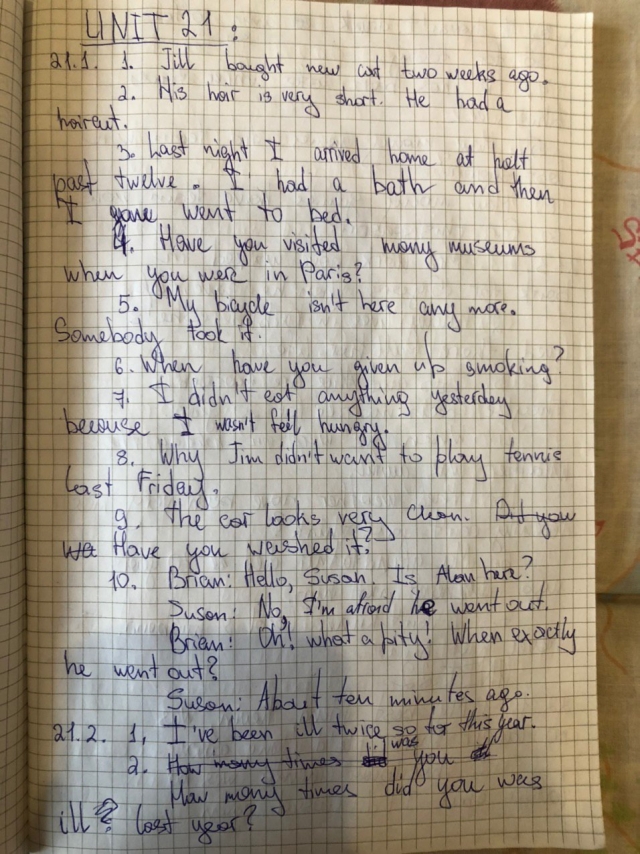 UNIT 21:
21.1. 1. Jill bought new cat two weeks ago.
2. His hair is very short. He had a
haircut.
3. Last night I arrived home at half
past twelve. I had a bath and then
I went to bed.
4. Have you visited many museums
when you were in Paris?
5. My bicycle isn't here any more.
Somebody took it.
6. When have you given up smoking?
7. I didn't eat anything yesterday
because I wasn't feel hungry.
8. Why Jim didn't want to play tennis
last Friday.
9. The car looks very clean. Did you
Have you washed it?
10. Brian: Hello, Susan. Is Alan here?
Suson: No, I'm afraid he went out.
Brian: Oh! what a pity! When exactly
he went out?
Suson: About ten minutes ago.
21.2. 1. I've been ill twice so far this year.
2. How many times was you
How many times did you was
ill last year?